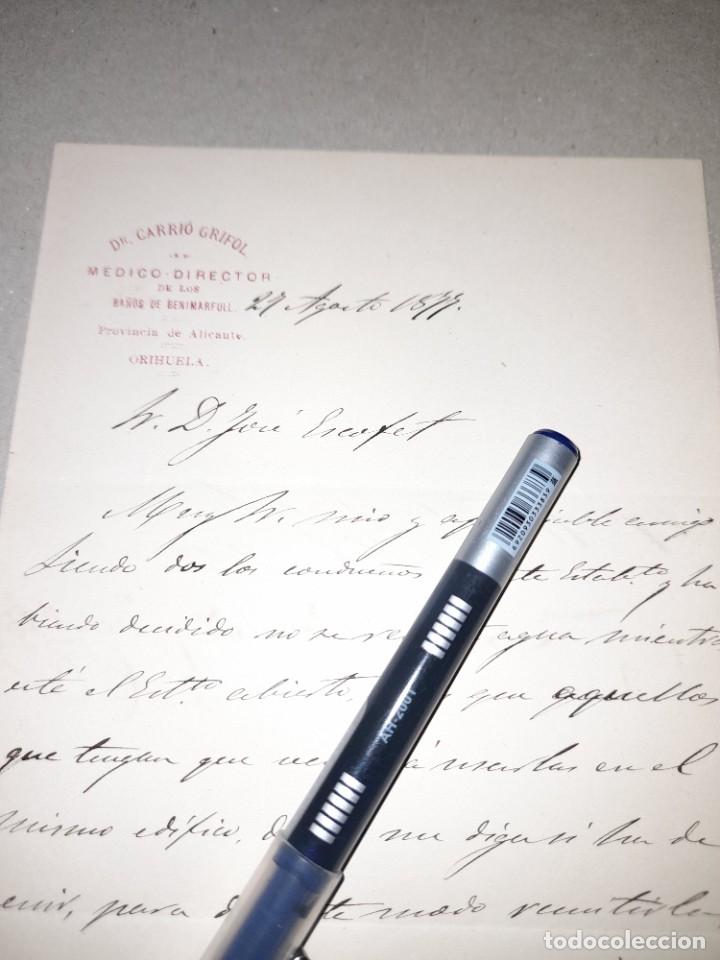 DR. CARRIÓ GRIFOL
MEDICO-DIRECTOR
DE LOS
BAÑOS DE BENIMARFULL.
Provincia de Alicante.
ORIHUELA.
27 Agosto 1877.
D. José Escofet
Muy mio y amigo
siendo dos los condueños Estabto y ha
biendo decidido no se agua mientras
esté el Estto abierto, que aquellos
que tengan que á usarlas en el
mismo edifico, me diga si ha de
para modo remitirle
6920930333839
AH-2001
todocoleccion
todocoleccion.net